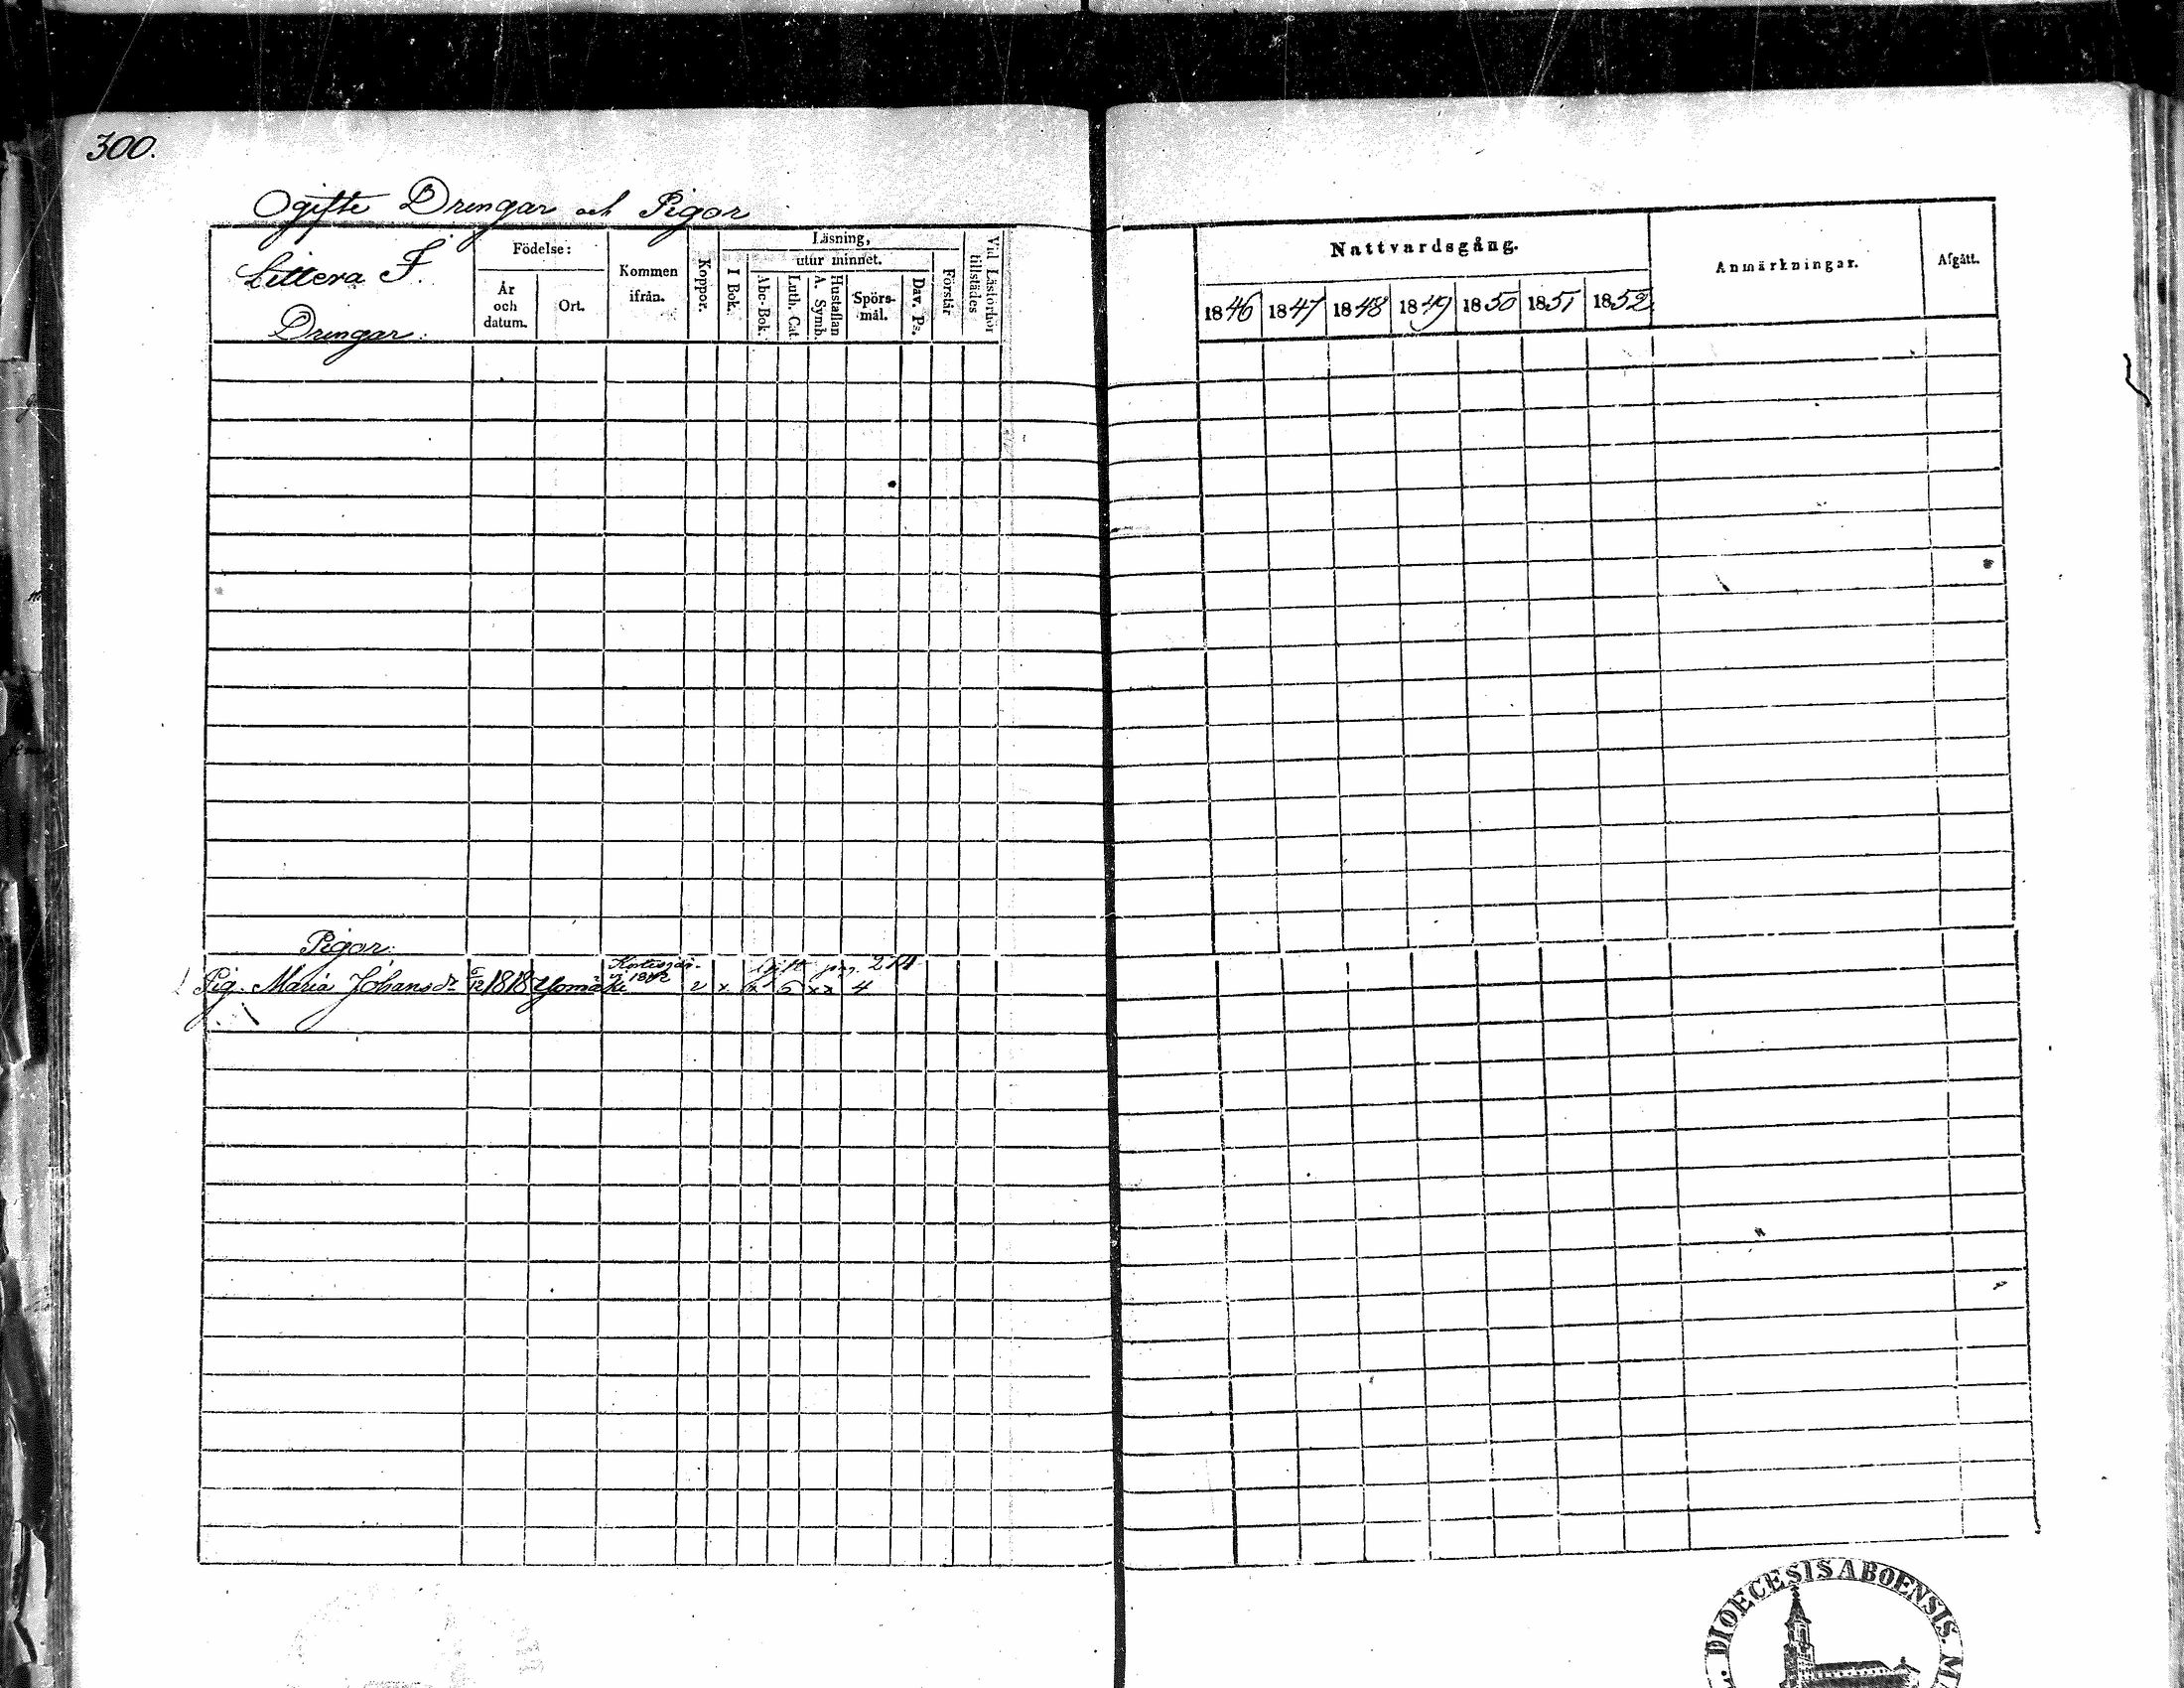 300.
Ogifte Drengar och Pigor
Littera F.
Drengar:
Födelse:
År och datum.
Ort.
Kommen ifrån.
Koppor.
Läsning,
I Bok.
utur minnet.
Abc-Bok.
Luth. Cat.
Hustaflan A. Symb.
Spörsmål.
Dav. Ps.
Förstår
Vid Läsförhör tillstädes
Nattvardsgång.
1846 1847 1848 1849 1850 1851 1852
Anmärkningar.
Afgått.
Pigor:
1842
gift pag. 274
Pig. Maria Johansdr 12 1818 v x 5 xx 4
DIOECESIS ABOENSIS. M